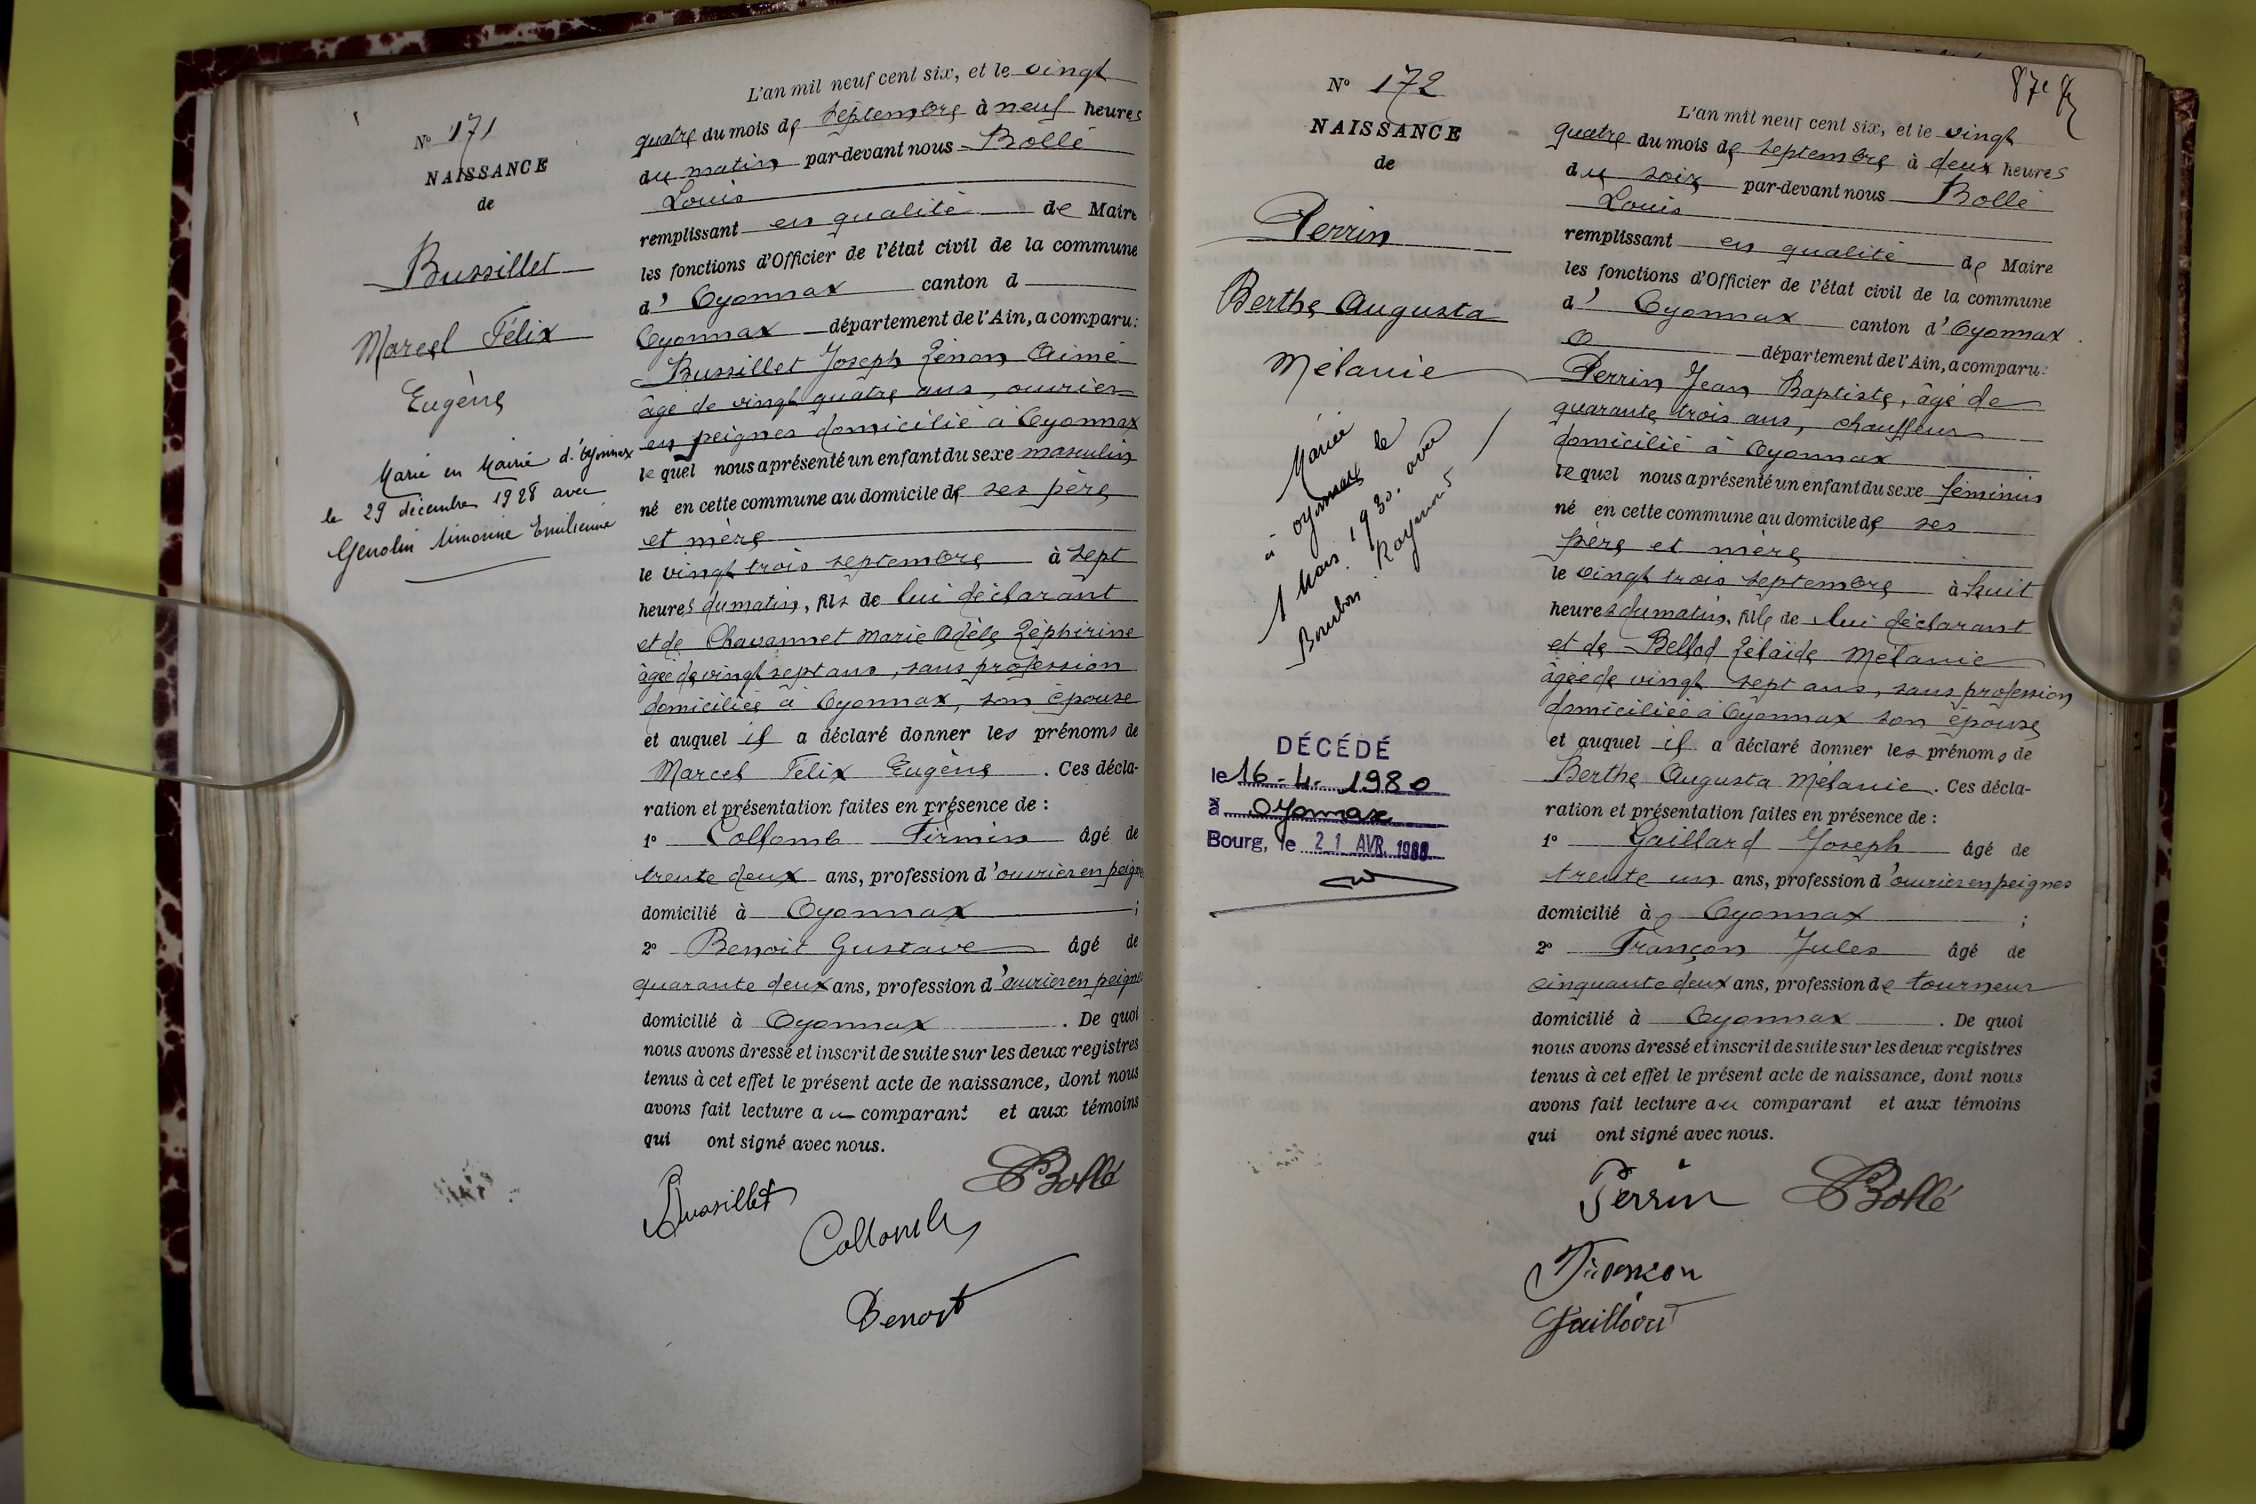 N° 171
NAISSANCE
de
Bussillet
Marcel Félix
Eugène
Marié en Mairie d'Oyonnax
le 29 décembre 1928 avec
Simonne Emilienne
L'an mil neuf cent six, et le vingt
quatre du mois de septembre à neuf heures
du matin par-devant nous Bollé
Louis
remplissant en qualité de Maire
les fonctions d'Officier de l'état civil de la commune
d' Oyonnax canton d
Oyonnax département de l'Ain, a comparu :
Bussillet Joseph Zénon Aimé
âgé de vingt quatre ans, ouvrier
en peignes domicilié à Oyonnax
lequel nous a présenté un enfant du sexe masculin
né en cette commune au domicile de ses père
et mère
le vingt trois septembre à sept
heures du matin, fils de lui déclarant
et de Chavannet Marie Adèle Zéphirine
âgée de vingt sept ans, sans profession
domiciliée à Oyonnax, son épouse
et auquel il a déclaré donner les prénoms de
Marcel Félix Eugène . Ces décla-
ration et présentation faites en présence de :
1° Collomb Firmin âgé de
trente deux ans, profession d'ouvrier en peignes
domicilié à Oyonnax ;
2° Benoit Gustave âgé de
quarante deux ans, profession d'ouvrier en peignes
domicilié à Oyonnax . De quoi
nous avons dressé et inscrit de suite sur les deux registres
tenus à cet effet le présent acte de naissance, dont nous
avons fait lecture au comparant et aux témoins
qui ont signé avec nous.
Bussillet Bollé
Collomb
Benoit
87e
N° 172
NAISSANCE
de
Perrin
Berthe Augusta
Mélanie
Mariée
à Oyonnax le
1 Mars 1930. avec
Bourbon Raymond
DÉCÉDÉ
le 16-4-1980
à Oyonnax
Bourg, le 21 AVR. 1980
L'an mil neuf cent six, et le vingt
quatre du mois de septembre à deux heures
du soir par-devant nous Bollé
Louis
remplissant en qualité de Maire
les fonctions d'Officier de l'état civil de la commune
d' Oyonnax canton d'Oyonnax
département de l'Ain, a comparu :
Perrin Jean Baptiste, âgé de
quarante trois ans, chauffeur
domicilié à Oyonnax
lequel nous a présenté un enfant du sexe féminin
né en cette commune au domicile de ses
père et mère
le vingt trois septembre à huit
heures du matin, fille de lui déclarant
et de Bellod Zélaïde Mélanie
âgée de vingt sept ans, sans profession
domiciliée à Oyonnax son épouse
et auquel il a déclaré donner les prénoms de
Berthe Augusta Mélanie . Ces décla-
ration et présentation faites en présence de :
1° Gaillard Joseph âgé de
trente un ans, profession d'ouvrier en peignes
domicilié à Oyonnax ;
2° Françon Jules âgé de
cinquante deux ans, profession de tourneur
domicilié à Oyonnax . De quoi
nous avons dressé et inscrit de suite sur les deux registres
tenus à cet effet le présent acte de naissance, dont nous
avons fait lecture au comparant et aux témoins
qui ont signé avec nous.
Perrin Bollé
Françon
Gaillard